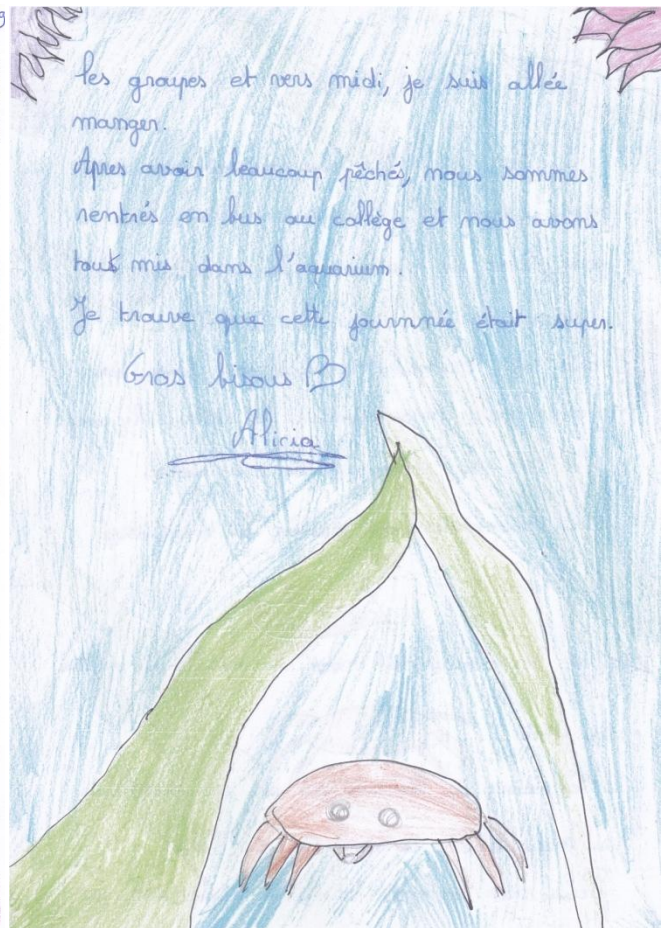 les groupes et vers midi, je suis allée
manger.
Apres avoir beaucoup pêchés, nous sommes
rentrés en bus au collège et nous avons
tout mis dans l'aquarium.
Je trouve que cette journnée était super.
Gros bisous
Alicia